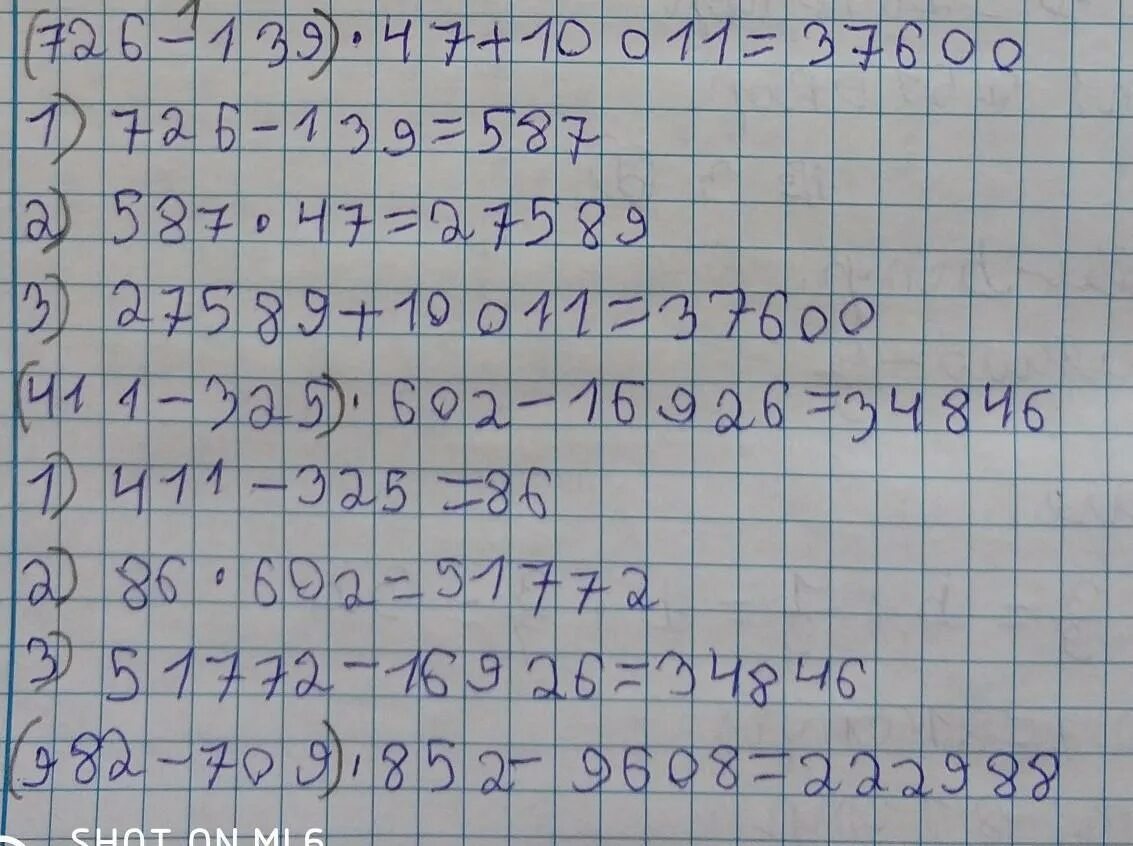 (726-139)·47+10011=37600
1) 726-139=587
2) 587·47=27589
3) 27589+10011=37600
(411-325)·602-16926=34846
1) 411-325=86
2) 86·602=51772
3) 51772-16926=34846
(982-709)·852-9608=222988
SHOT ON MI 6